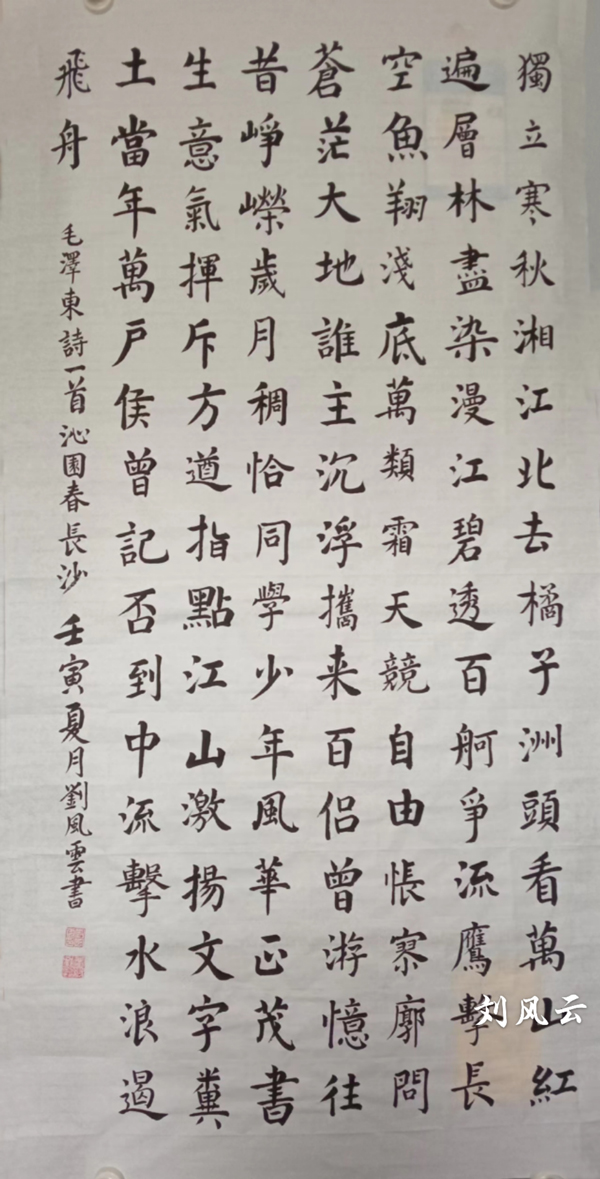 獨立寒秋湘江北去橘子洲頭看萬山紅
遍層林盡染漫江碧透百舸爭流鷹擊長
空魚翔淺底萬類霜天競自由悵寥廓問
蒼茫大地誰主沉浮攜来百侶曾游憶往
昔崢嶸歲月稠恰同學少年風華正茂書
生意氣揮斥方遒指點江山激揚文字糞
土當年萬户侯曾記否到中流擊水浪遏
飛舟 毛澤東詩一首沁園春長沙 壬寅夏月劉風雲書
刘风云